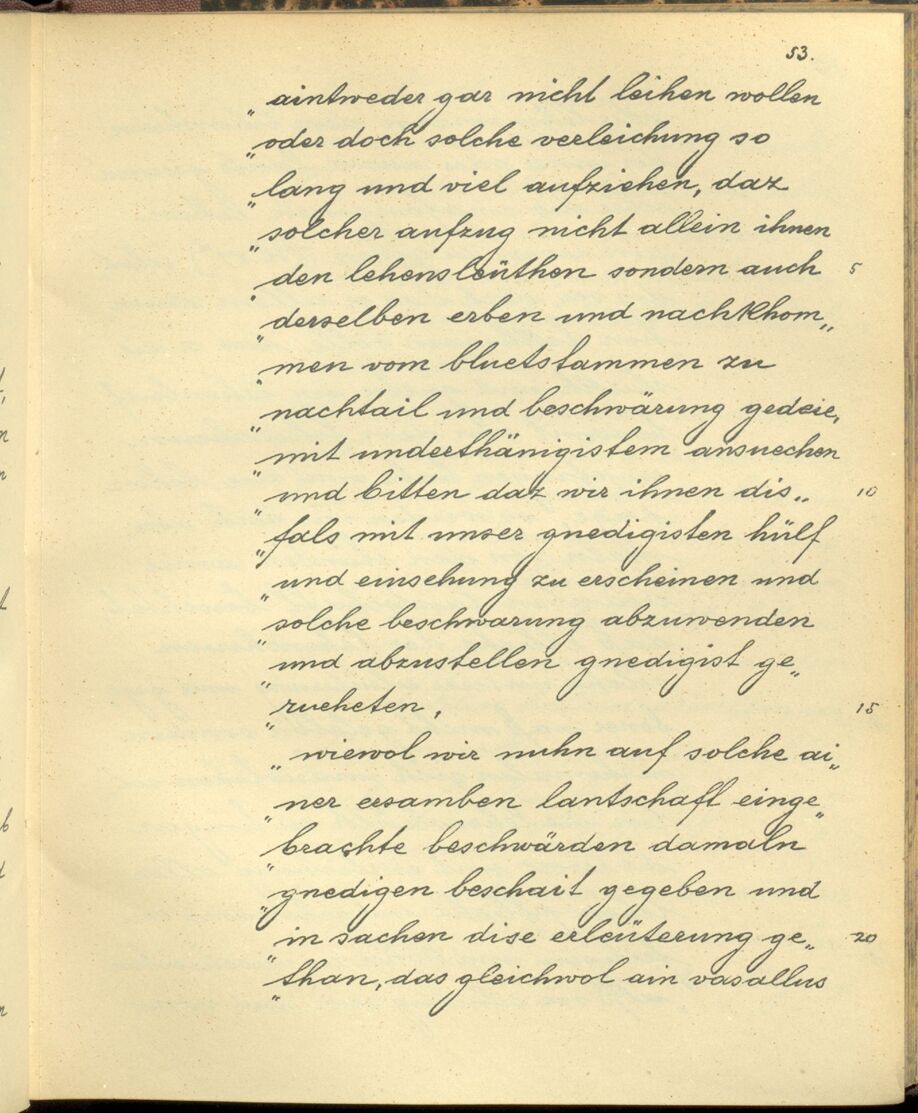 53.
„aintweder gar nicht leihen wollen
„oder doch solche verleichung so
„lang und viel aufziehen, daz
„solcher aufzug nicht allein ihnen
„den lehensleüthen sondern auch 5
„derselben erben und nachkhom„
„men vom bluetstammen zu
„nachtail und beschwärung gedeie,
„mit underthänigistem ansuechen
„und bitten daz wir ihnen dis„ 10
„fals mit unser gnedigisten hülf
„und einsehung zu erscheinen und
„solche beschwarung abzuwenden
„und abzustellen gnedigist ge„
„rueheten, 15
„wiewol wir nuhn auf solche ai„
„ner ersamben lantschaft einge„
„brachte beschwärden damaln
„gnedigen beschait gegeben und
„in sachen dise erleüterung ge„ 20
„than, das gleichwol ain vasallus